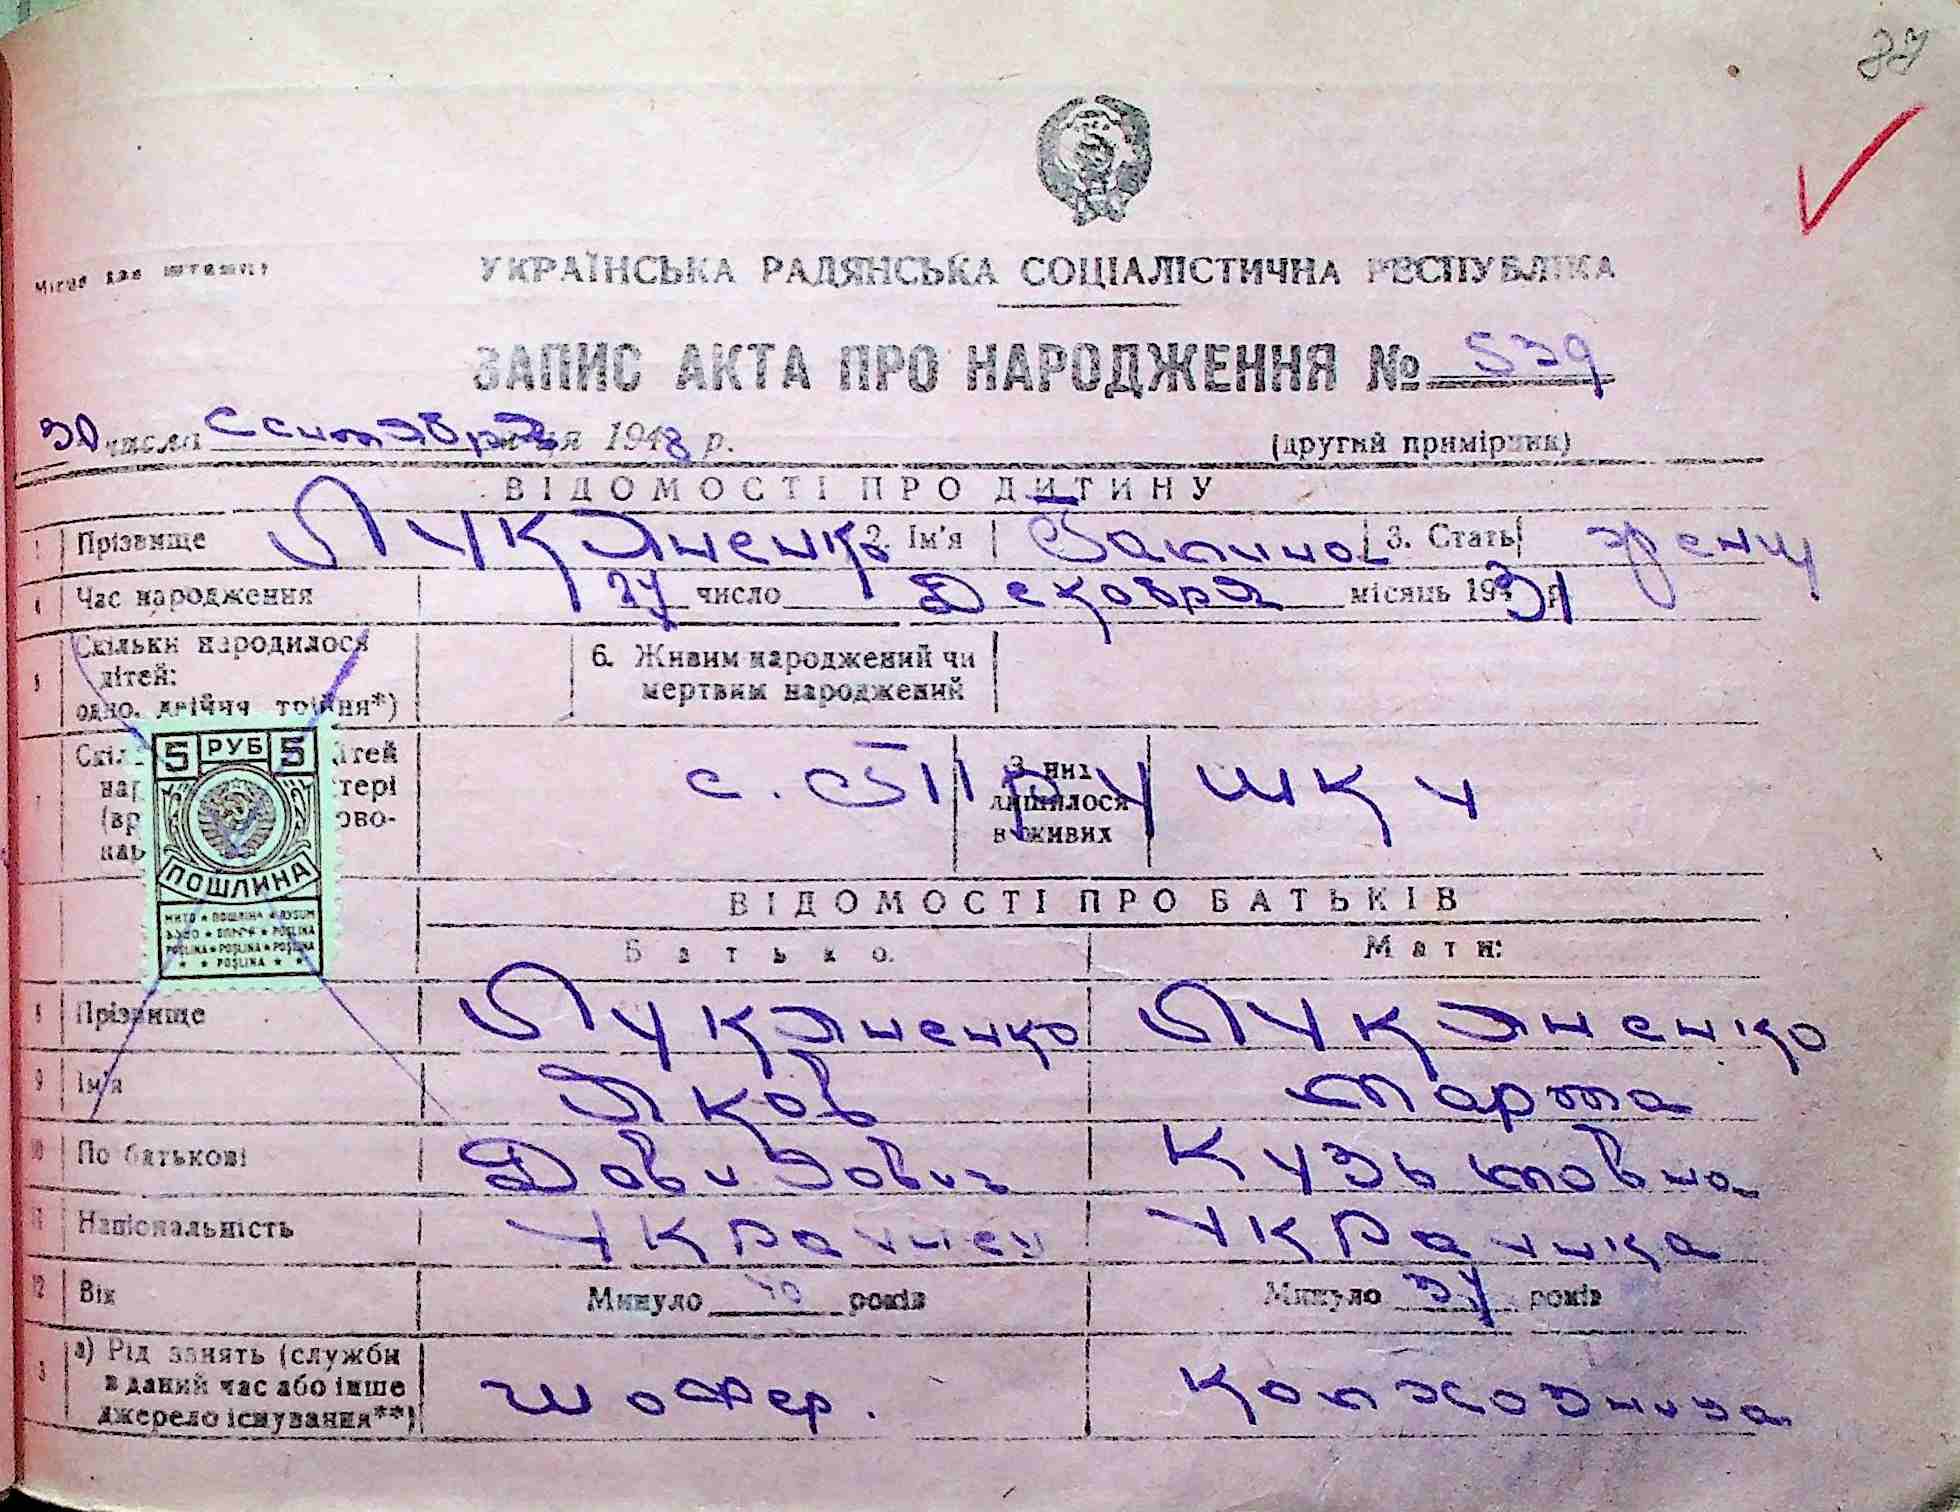 Місце для штампу
УКРАЇНСЬКА РАДЯНСЬКА СОЦІАЛІСТИЧНА РЕСПУБЛІКА
ЗАПИС АКТА ПРО НАРОДЖЕННЯ № 539
30 числа Сентября 1948 р.
(другий примірник)
ВІДОМОСТІ ПРО ДИТИНУ
1 Прізвище Лукяненко 2. Ім'я Галина 3. Стать женщ
4 Час народження 24 число Декабря місяць 1931 р
5 Скільки народилося дітей: одно, двійня, трійня*)
6. Живим народжений чи мертвим народжений
7
З них лишилося в живих
с.
5 РУБ 5
ПОШЛИНА
ВІДОМОСТІ ПРО БАТЬКІВ
Батько: Мати:
8 Прізвище Лукяненко Лукяненко
9 Ім'я Яков Марта
10 По батькові Давидович Кузьмовна
11 Національність Украинец Украинка
12 Вік Минуло 40 років Минуло 34 років
а) Рід занять (служби в даний час або інше джерело існування**) шофер. Колхозница